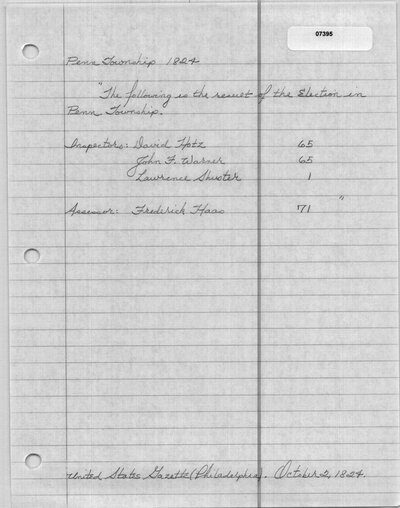 07395
Penn Township 1824
"The following is the result of the Election in
Penn Township.
Inspectors: David Hotz 65
John F. Warner 65
Lawrence Shuster 1
Assessor: Frederick Haas 71 "
United States Gazette (Philadelphia). October 2, 1824.